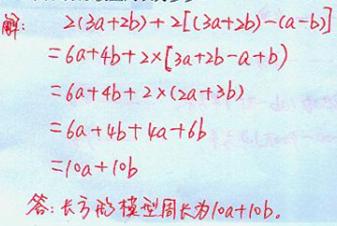 解: 2(3a+2b)+2[(3a+2b)-(a-b)]
=6a+4b+2×[3a+2b-a+b)
=6a+4b+2×(2a+3b)
=6a+4b+4a+6b
=10a+10b
答:长方形模型周长为10a+10b。